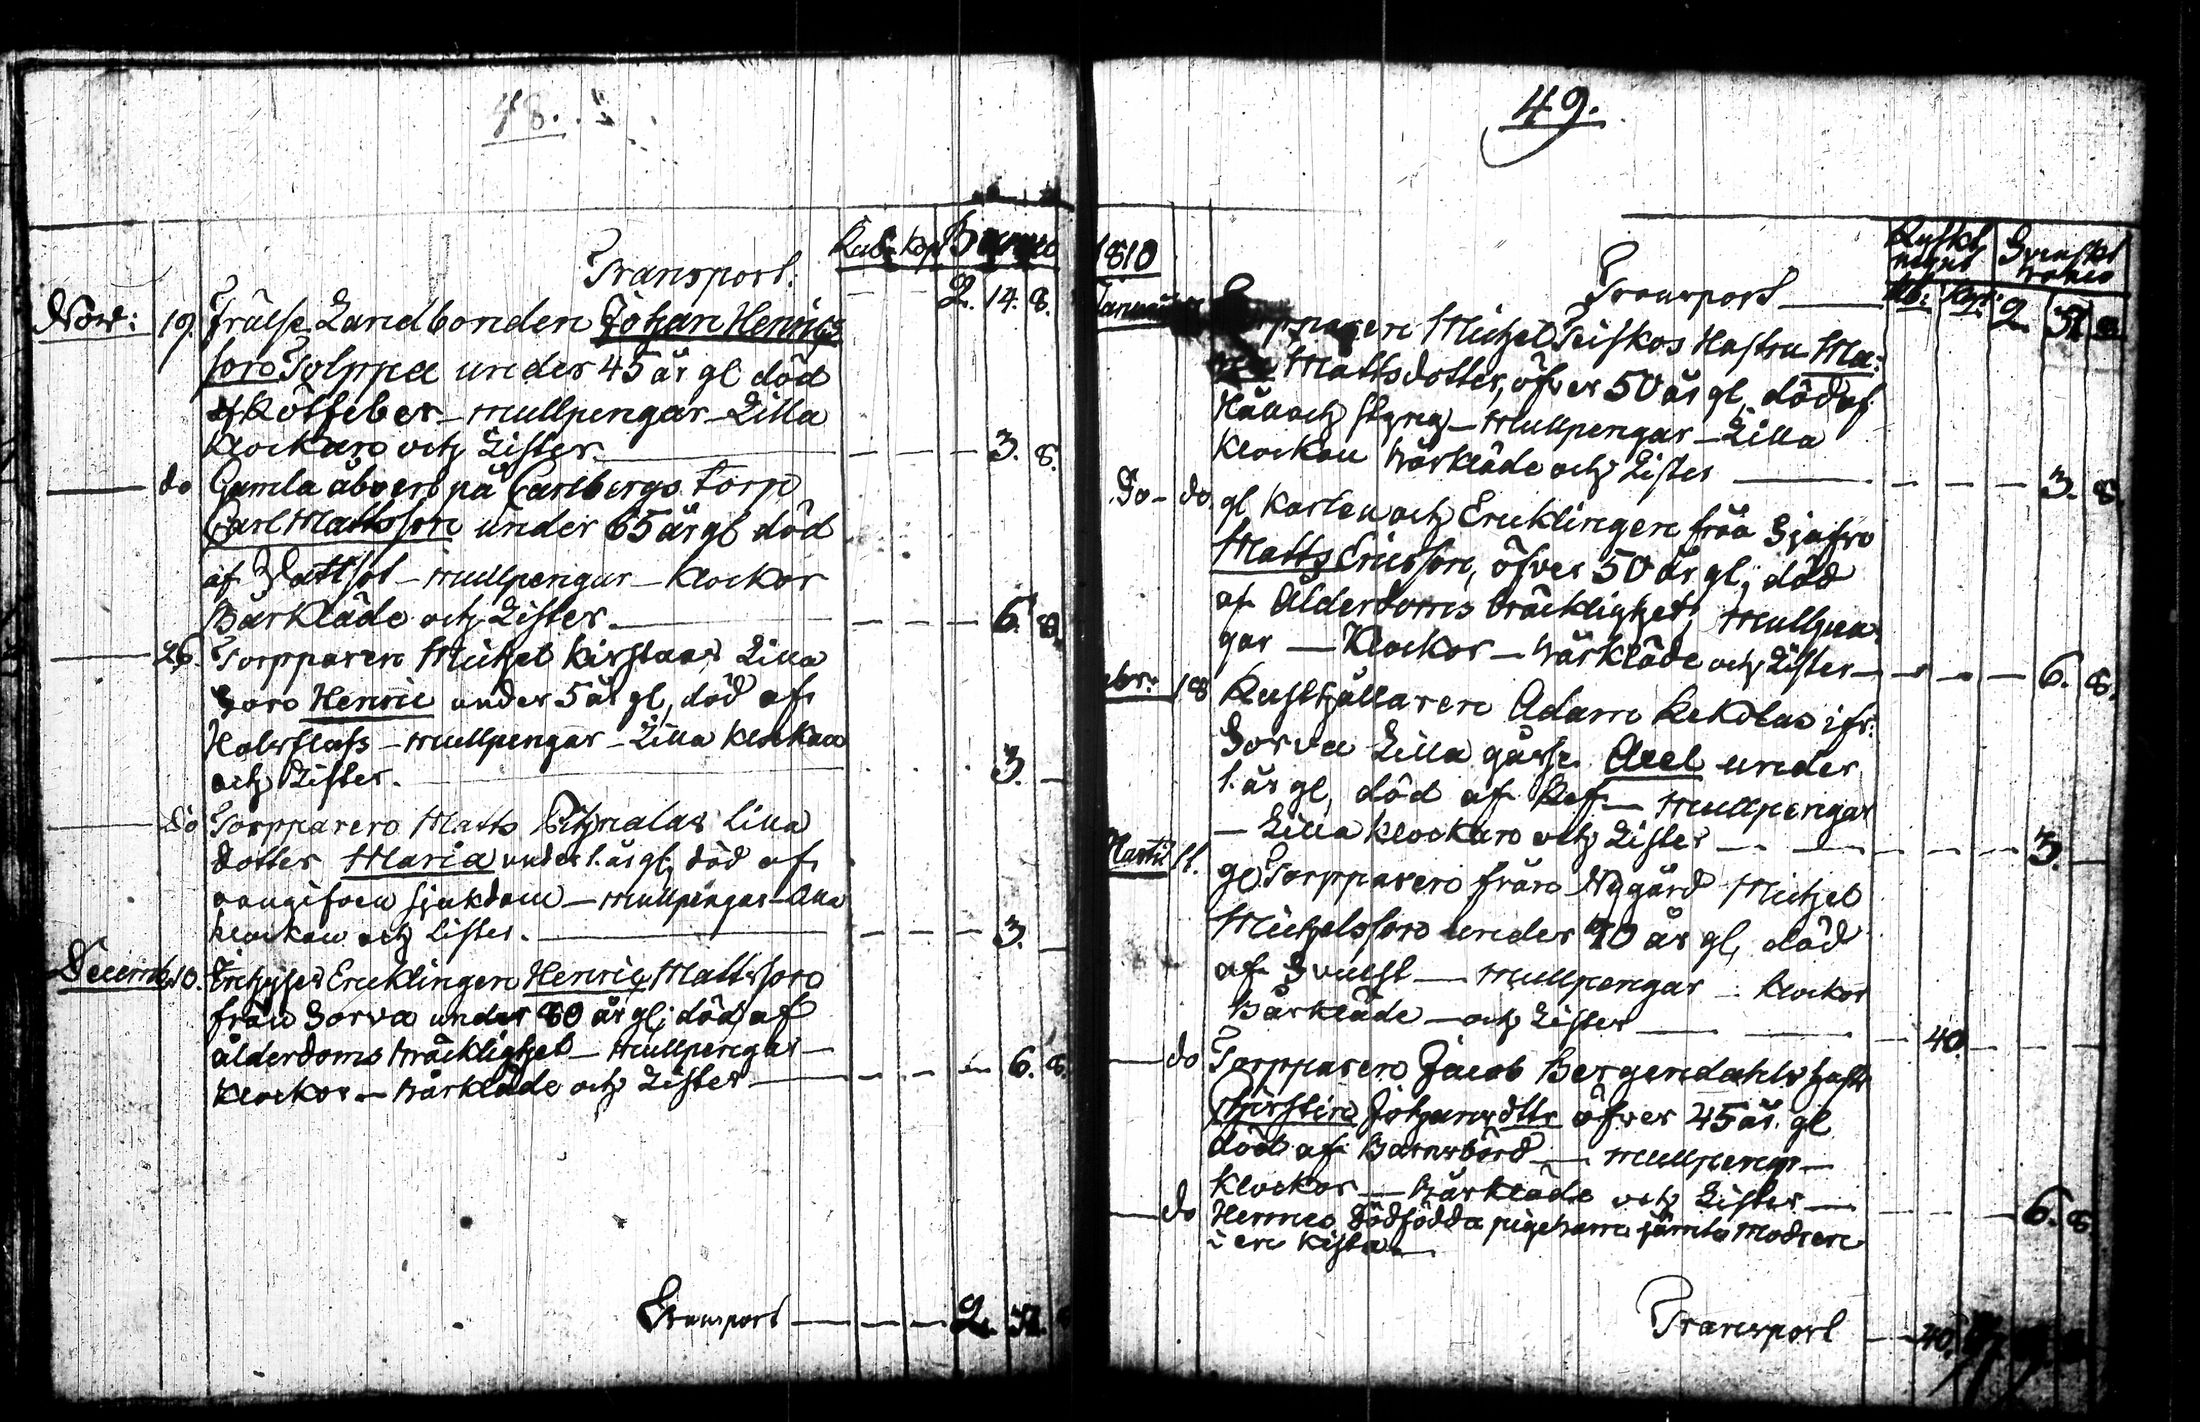 48.
Rub. Kop. Banco
Transport. 2. 14. 8.
Nov: 19. Frälse Landbonden Johan Henrics
son Tolppa under 45 år gl död
af Rötfeber - mullpengar - Lilla
Klockan och Lister. 3. 8.
do Gamla åboen på Carlbergs torp
Carl Mattsson under 65 år gl död
af Vattsot - mullpengar - Klockor
Bårkläde och Lister. 6. 8.
26. Torpparen Michel Kirstaas Lilla
Son Henric under 5 år gl, död af
Halsflufs - mullpengar - Lilla Klockan
och Lister. 3. -
do Torpparen Matts Lilla
dotter Maria under 1. år gl, död af
oangifven sjukdom - mullpengar - Lilla
klockan och Lister. 3. -
Decemb. 10. Enklingen Henric Mattsson
från Sorva under 80 år gl; död af
ålderdoms bräcklighet - mullpengar -
Klockor - Bårkläde och Lister - 6. 8.
Transport - 2.
49.
1810 Ryskt mynt Svenskt banco
Transport Rb: Kop: 2.
Januari Torpparen Michel Teiskos Hustru Ma:
Mattsdotter, öfver 50 år gl, död af
Håll och styng - mullpengar - Lilla
Klockan bårkläde och Lister 3. 8.
Do - do. gl Karlen och Enklingen från Sjafro
Matts Ericsson, öfver 50 år gl; död
af Ålderdoms bräcklighet, mullpen:
gar - Klockor - bårkläde och Lister - 6. 8.
ebr: 18 Rusthållaren Adam Kekolas ifr:
Sorva Lilla gosse Axel under
1. år gl, död af Ref - mullpengar
- Lilla klockan och Lister 3. -
Martii 11. gl Torpparen från Nygård Michel
Michelsson under 90 år gl, död
af Svulst - mullpengar - klockor
Bårkläde - och Lister - 40.
do Torpparen Jacob Bergendahls hustr
Christina Johans dttr öfver 45 år gl
död af Barnsbörd - mullpengr -
Klockor - Bårkläde och Lister - 6. 8.
do Hennes dödfödda pigebarn jämte Modren
i en kista -
Transport 40.